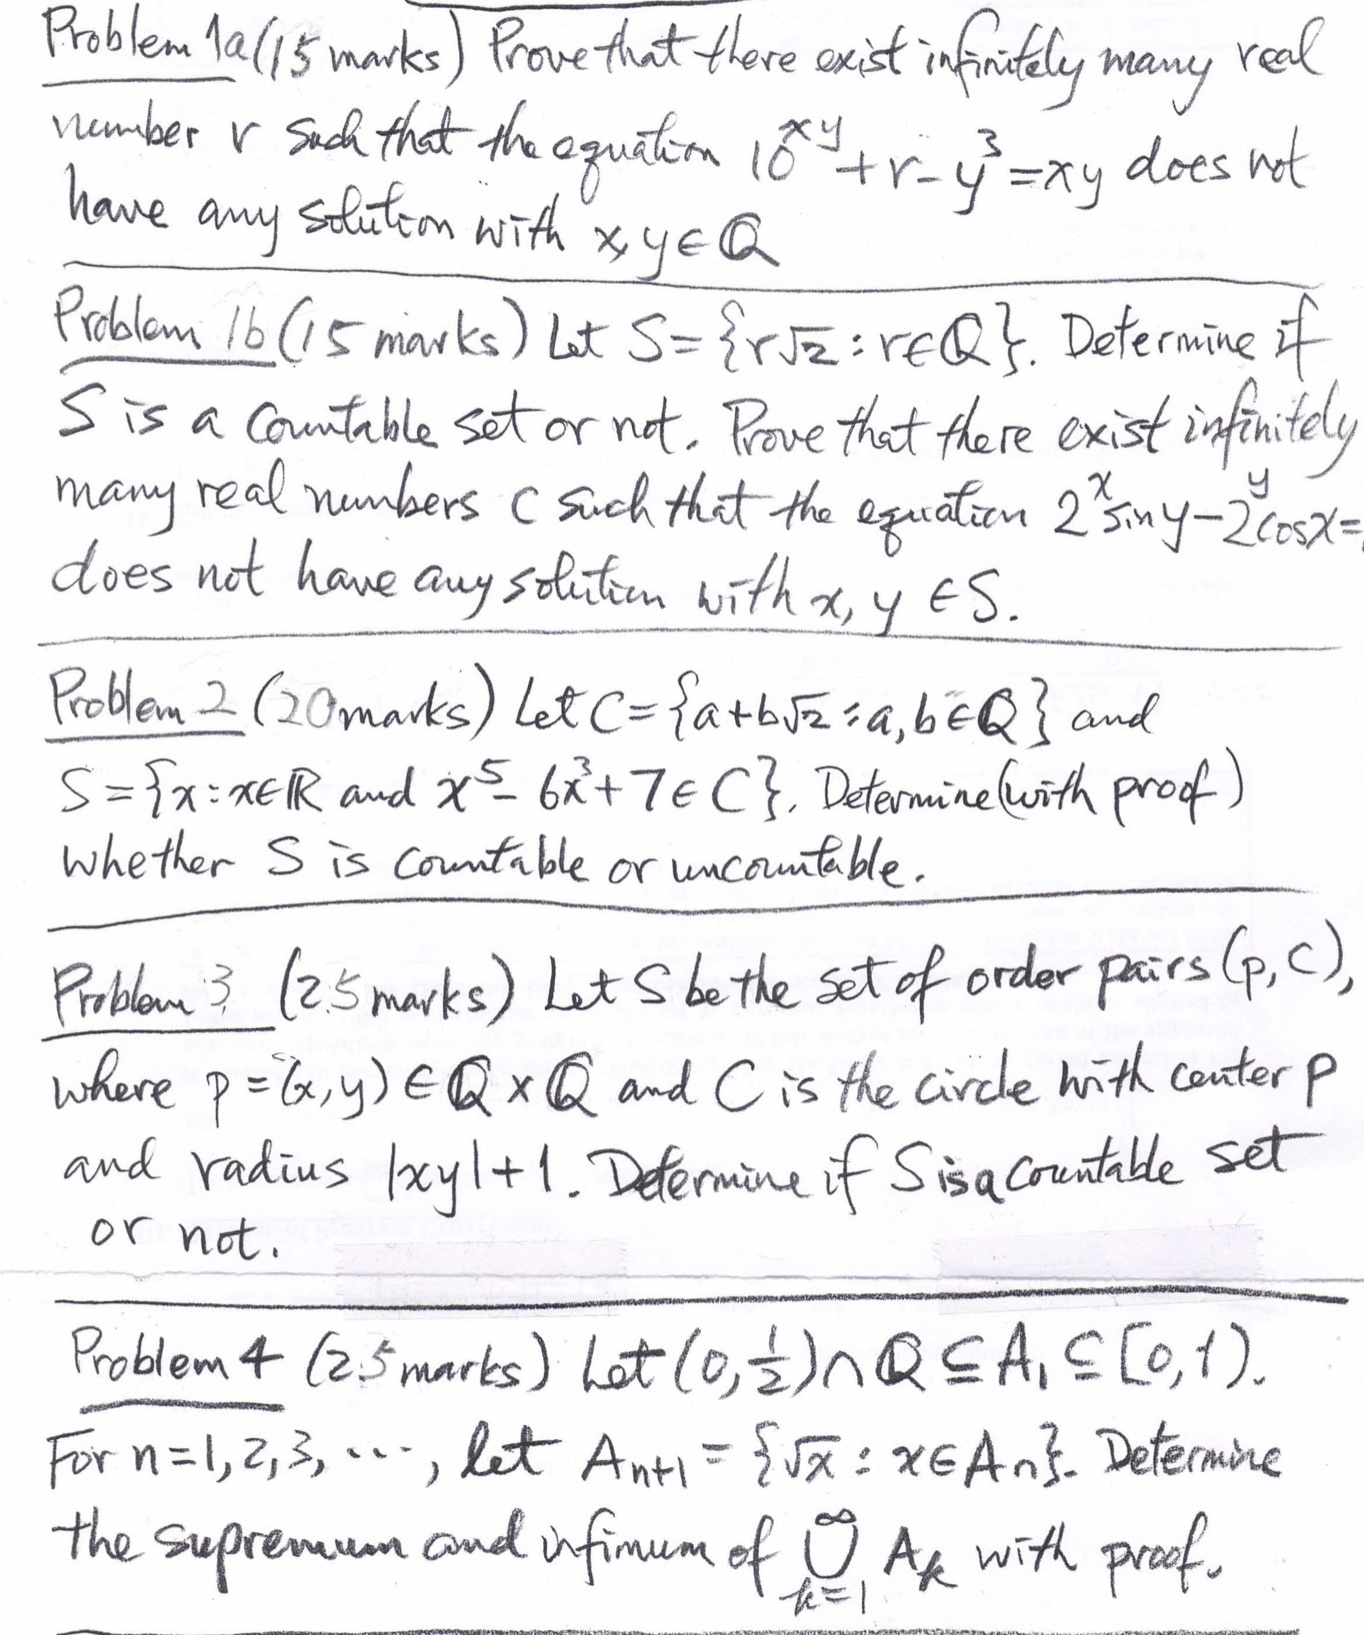 Problem 1a (15 marks) Prove that there exist infinitely many real
number r such that the equation 10^{xy}+r-y^3=xy does not
have any solution with x,y∈ℚ
Problem 1b (15 marks) Let S={r√2:r∈ℚ}. Determine if
S is a countable set or not. Prove that there exist infinitely
many real numbers c such that the equation 2^x sin y-2^y cos x=
does not have any solution with x, y ∈S.
Problem 2 (20 marks) Let C={a+b√2:a,b∈ℚ} and
S={x:x∈ℝ and x^5-6x^3+7∈C}. Determine (with proof)
whether S is countable or uncountable.
Problem 3 (25 marks) Let S be the set of order pairs (p,C),
where p=(x,y)∈ℚ×ℚ and C is the circle with center p
and radius |xy|+1. Determine if S is a countable set
or not.
Problem 4 (25 marks) Let (0,1/2)∩ℚ⊆A_1⊆[0,1).
For n=1,2,3,..., let A_{n+1}={√x:x∈A_n}. Determine
the supremum and infimum of ∞∪k=1 A_k with proof.